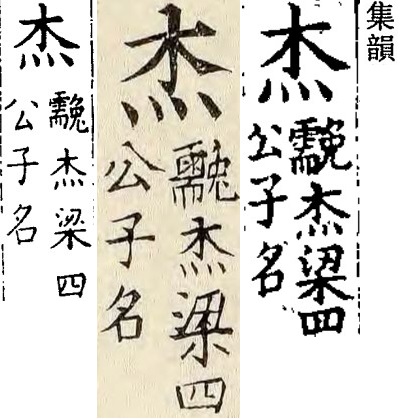 集韻
杰
䨲杰梁四
公子名
杰
䨲杰梁四
公子名
杰
䨲杰梁四
公子名